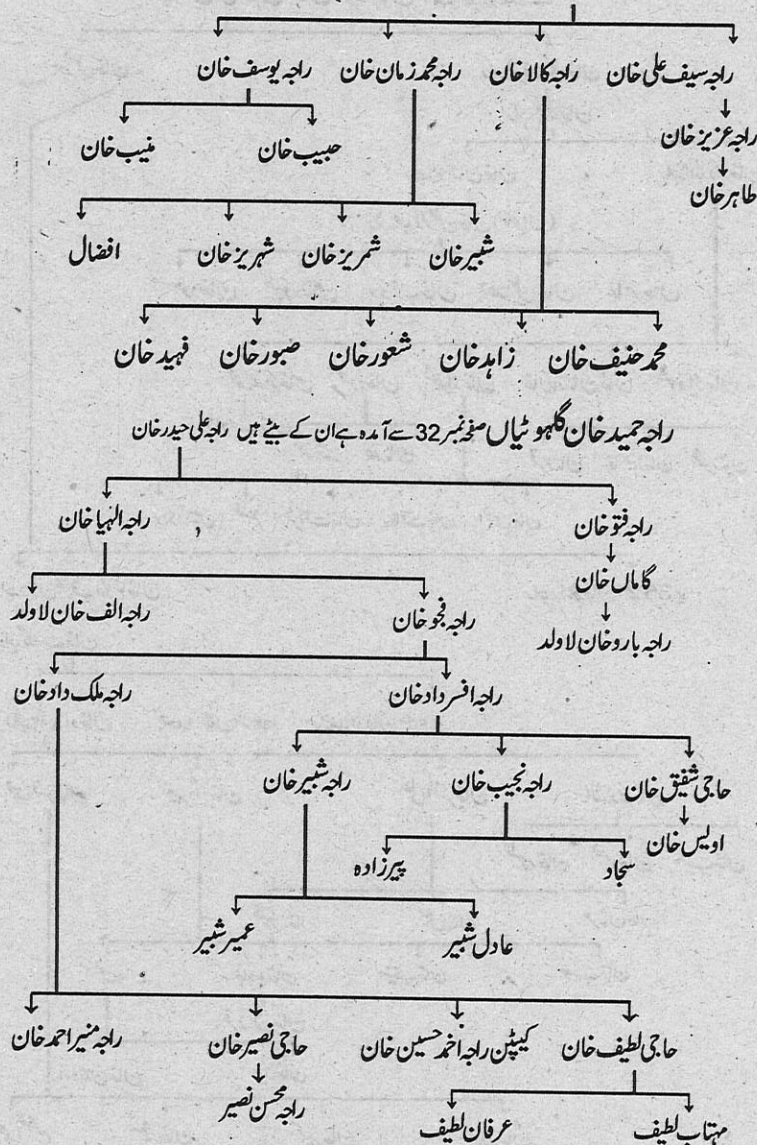 راجہ سیف علی خان راجہ کالا خان راجہ محمد زمان خان راجہ یوسف خان
راجہ عزیز خان حبیب خان منیب خان
طاہر خان
شبیر خان شمریز خان شہریز خان افضال
محمد حنیف خان زاہد خان شعور خان صبور خان فہید خان
راجہ حمید خان گلہوٹیاں صفحہ نمبر 32 سے آمدہ ہے ان کے بیٹے ہیں راجہ علی حیدر خان
راجہ فتو خان راجہ الہیا خان
گاماں خان
راجہ بارو خان لاولد راجہ فجو خان راجہ الف خان لاولد
راجہ افسر داد خان راجہ ملک داد خان
حاجی شفیق خان راجہ نجیب خان راجہ شبیر خان
اویس خان سجاد پیرزادہ
عادل شبیر عمیر شبیر
حاجی لطیف خان کیپٹن راجہ احمد حسین خان حاجی نصیر خان راجہ منیر احمد خان
راجہ محسن نصیر
مہتاب لطیف عرفان لطیف